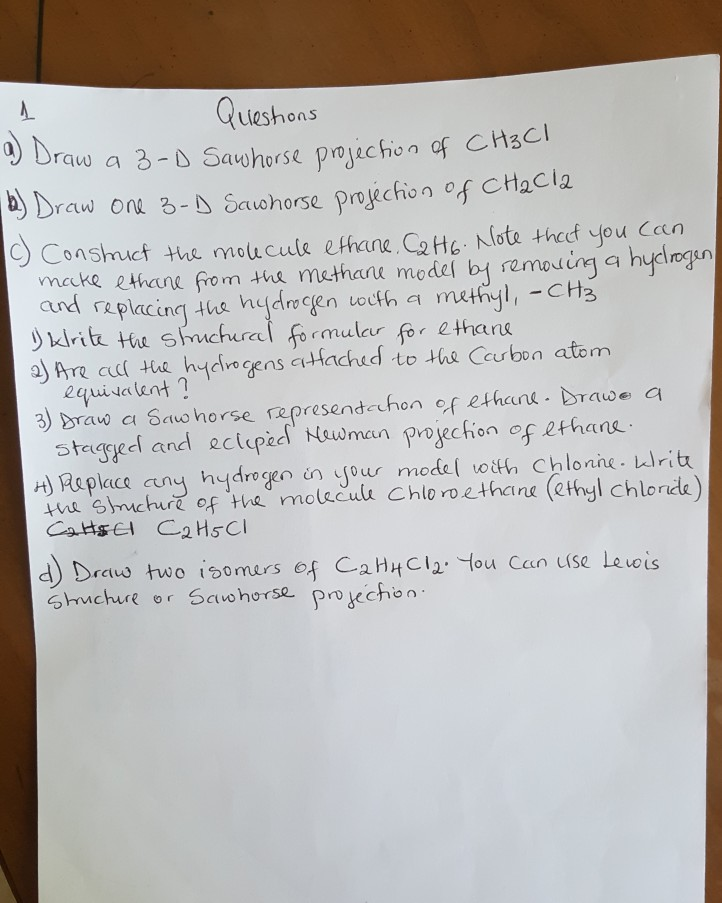 1 Questions
a) Draw a 3-D Sawhorse projection of CH3Cl
b) Draw one 3-D Sawhorse projection of CH2Cl2
c) Construct the molecule ethane, C2H6. Note that you can
make ethane from the methane model by removing a hydrogen
and replacing the hydrogen with a methyl, -CH3
1) Write the structural formular for ethane
2) Are all the hydrogens attached to the Carbon atom
equivalent?
3) Draw a Sawhorse representation of ethane. Draw a
stagged and ecliped Newman projection of ethane.
4) Replace any hydrogen in your model with Chlorine. Write
the structure of the molecule Chloroethane (ethyl chloride)
C2H5Cl C2H5Cl
d) Draw two isomers of C2H4Cl2. You can use Lewis
structure or Sawhorse projection.